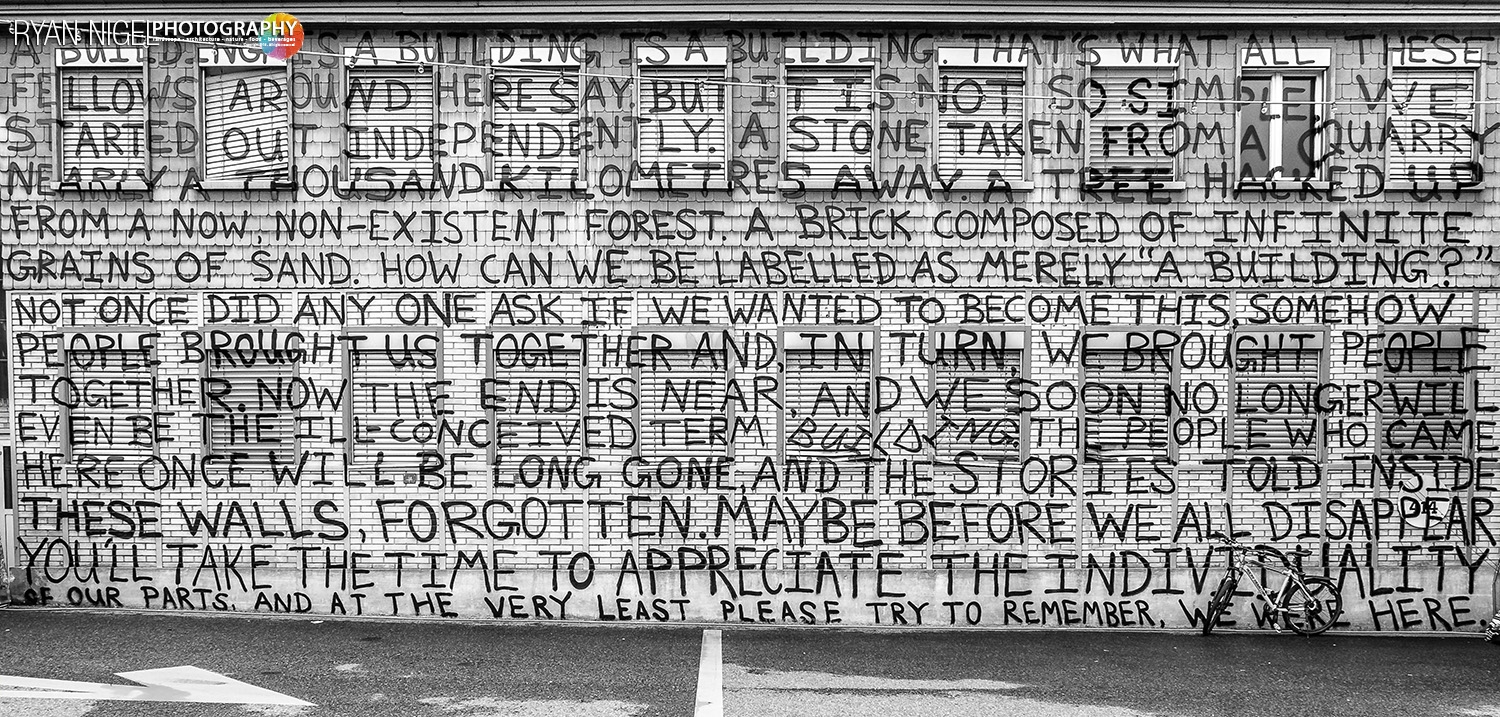 RYAN NIGEL PHOTOGRAPHY
landscape - architecture - nature - food - beverages
A BUILDING IS A BUILDING IS A BUILDING. THAT'S WHAT ALL THESE
FELLOWS AROUND HERE SAY. BUT IT IS NOT SO SIMPLE. WE
STARTED OUT INDEPENDENTLY. A STONE TAKEN FROM A QUARRY
NEARLY A THOUSAND KILOMETRES AWAY. A TREE HACKED UP
FROM A NOW, NON-EXISTENT FOREST. A BRICK COMPOSED OF INFINITE
GRAINS OF SAND. HOW CAN WE BE LABELLED AS MERELY "A BUILDING?"
NOT ONCE DID ANY ONE ASK IF WE WANTED TO BECOME THIS, SOMEHOW
PEOPLE BROUGHT US TOGETHER AND, IN TURN, WE BROUGHT PEOPLE
TOGETHER. NOW THE END IS NEAR, AND WE SOON NO LONGER WILL
EVEN BE THE ILL-CONCEIVED TERM BUILDING. THE PEOPLE WHO CAME
HERE ONCE WILL BE LONG GONE, AND THE STORIES TOLD INSIDE
THESE WALLS, FORGOTTEN. MAYBE BEFORE WE ALL DISAPPEAR
YOU'LL TAKE THE TIME TO APPRECIATE THE INDIVIDUALITY
OF OUR PARTS. AND AT THE VERY LEAST PLEASE TRY TO REMEMBER, WE WERE HERE.